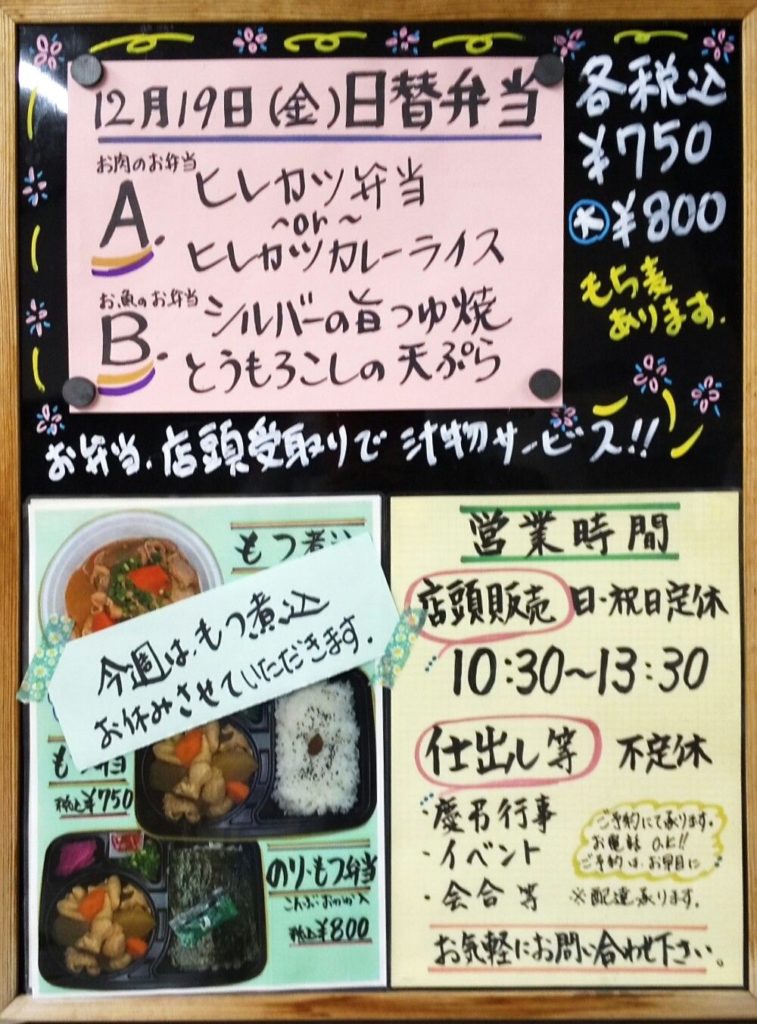 12月19日(金)日替弁当
お肉のお弁当
A. ヒレカツ弁当
~or~
ヒレカツカレーライス
お魚のお弁当
B. シルバーの旨つゆ焼
とうもろこしの天ぷら
各税込
¥750
大 ¥800
もち麦
あります.
お弁当、店頭受取りで 汁物サービス!!
もつ煮込
今週は、もつ煮込
お休みさせていただきます.
もつ弁当
税込¥750
のり・もつ弁当
こんぶ・おかか入
税込¥800
営業時間
店頭販売 日・祝日定休
10:30~13:30
仕出し等 不定休
・慶弔行事
・イベント
・会合等
ご予約にて承ります.
お電話 OK!!
ご予約は、お早目に
※配達承ります.
お気軽にお問い合わせ下さい。